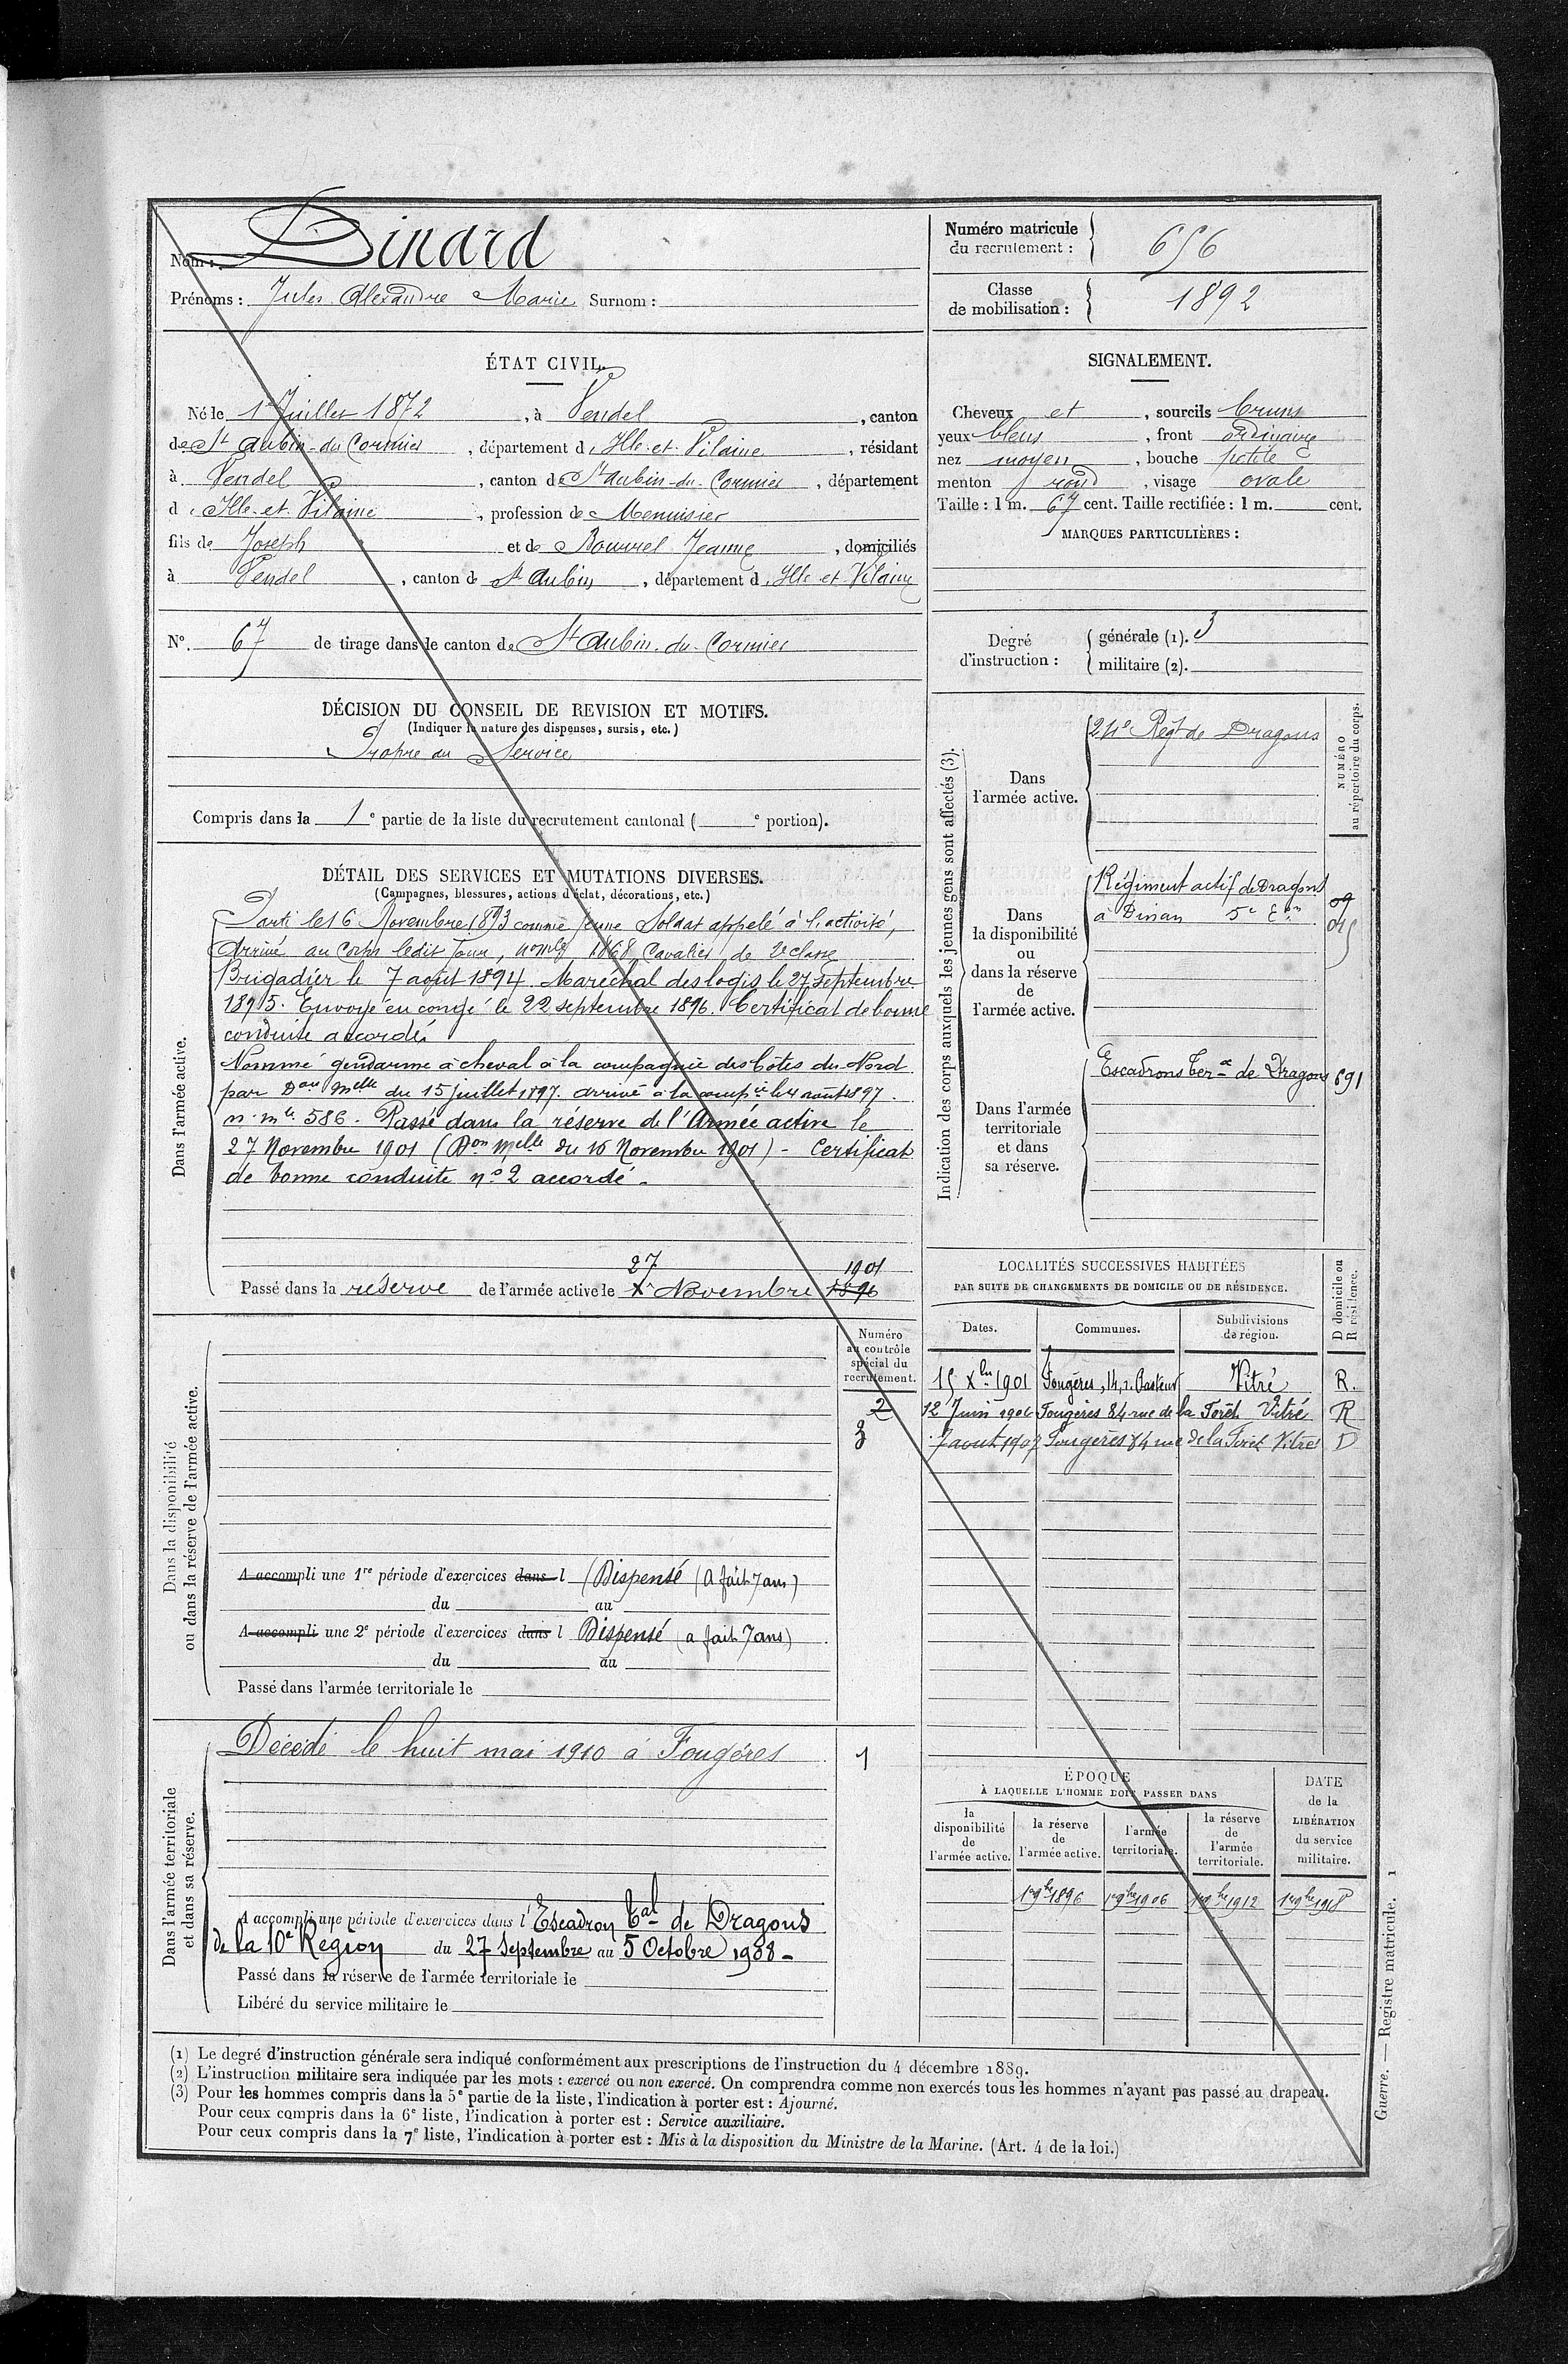 Nom : Dinard
Prénoms : Jules Alexandre Marie Surnom :
Numéro matricule du recrutement : 656
Classe de mobilisation : 1892
ÉTAT CIVIL.
Né le 1er Juillet 1872, à Vendel, canton
de St Aubin-du Cormier, département d'Ille-et-Vilaine, résidant
à Vendel, canton de St Aubin-du-Cormier, département
d'Ille-et-Vilaine, profession de Menuisier
fils de Joseph et de Bouvrel Jeanne, domiciliés
à Vendel, canton de St Aubin, département d'Ille et Vilaine
SIGNALEMENT.
Cheveux et, sourcils bruns
yeux bleus, front ordinaire
nez moyen, bouche petite
menton rond, visage ovale
Taille : 1 m. 67 cent. Taille rectifiée : 1 m. cent.
MARQUES PARTICULIÈRES :
N°. 67 de tirage dans le canton de St Aubin-du-Cormier
Degré d'instruction : générale (1). 3
militaire (2).
DÉCISION DU CONSEIL DE REVISION ET MOTIFS.
(Indiquer la nature des dispenses, sursis, etc.)
Propre au Service
Compris dans la 1e partie de la liste du recrutement cantonal ( e portion).
DÉTAIL DES SERVICES ET MUTATIONS DIVERSES.
(Campagnes, blessures, actions d'éclat, décorations, etc.)
Dans l'armée active.
Parti le 16 Novembre 1893 comme jeune Soldat appelé à l'activité,
Arrivé au Corps ledit Jour, no mle 1868 Cavalier de 2e classe
Brigadier le 7 août 1894. Maréchal des logis le 27 septembre
1895. Envoyé en congé le 22 septembre 1896. Certificat de bonne
conduite accordé
Nommé gendarme à cheval à la compagnie des Côtes du Nord
par Don Mlle du 15 juillet 1897. arrivé à la compie le 4 août 1897.
n° mle 586. Passé dans la réserve de l'Armée active le
27 Novembre 1901 (Don Melle du 16 Novembre 1901) - Certificat
de bonne conduite n° 2 accordé.
27 1901
Passé dans la réserve de l'armée active le 1er Novembre 1896
Indication des corps auxquels les jeunes gens sont affectés (3).
NUMÉRO au répertoire du corps.
Dans l'armée active.
24e Régt de Dragons
Dans la disponibilité ou dans la réserve de l'armée active.
Régiment actif de Dragons
à Dinan 5e Eon
Dans l'armée territoriale et dans sa réserve.
Escadrons terx de Dragons 691
LOCALITÉS SUCCESSIVES HABITÉES
PAR SUITE DE CHANGEMENTS DE DOMICILE OU DE RÉSIDENCE.
Dates. Communes. Subdivisions de région. D domicile ou R résidence.
15 Xbre 1901 Fougères, 14, r. Pasteur Vitré R.
12 Juin 1906 Fougères 84 rue de la Forêt Vitré R
7 aout 1907 Fougères 84 rue de la Forêt Vitré D
Dans la disponibilité ou dans la réserve de l'armée active.
Numéro au contrôle spécial du recrutement.
2
3
A accompli une 1re période d'exercices dans l (Dispensé (A fait 7 ans)
du au
A accompli une 2e période d'exercices dans l Dispensé (a fait 7 ans)
du au
Passé dans l'armée territoriale le
Dans l'armée territoriale et dans sa réserve.
Décédé le huit mai 1910 à Fougères
1
A accompli une période d'exercices dans l'Escadron tal de Dragons
de la 10e Région du 27 Septembre au 5 Octobre 1908 -
Passé dans la réserve de l'armée territoriale le
Libéré du service militaire le
ÉPOQUE
À LAQUELLE L'HOMME DOIT PASSER DANS
la disponibilité de l'armée active.
la réserve de l'armée active.
l'armée territoriale.
la réserve de l'armée territoriale.
DATE de la LIBÉRATION du service militaire.
1er 9bre 1896 1er 9bre 1906 1er 9bre 1912 1er 9bre 1918
(1) Le degré d'instruction générale sera indiqué conformément aux prescriptions de l'instruction du 4 décembre 1889.
(2) L'instruction militaire sera indiquée par les mots : exercé ou non exercé. On comprendra comme non exercés tous les hommes n'ayant pas passé au drapeau.
(3) Pour les hommes compris dans la 5e partie de la liste, l'indication à porter est : Ajourné.
Pour ceux compris dans la 6e liste, l'indication à porter est : Service auxiliaire.
Pour ceux compris dans la 7e liste, l'indication à porter est : Mis à la disposition du Ministre de la Marine. (Art. 4 de la loi.)
Guerre. — Registre matricule. 1